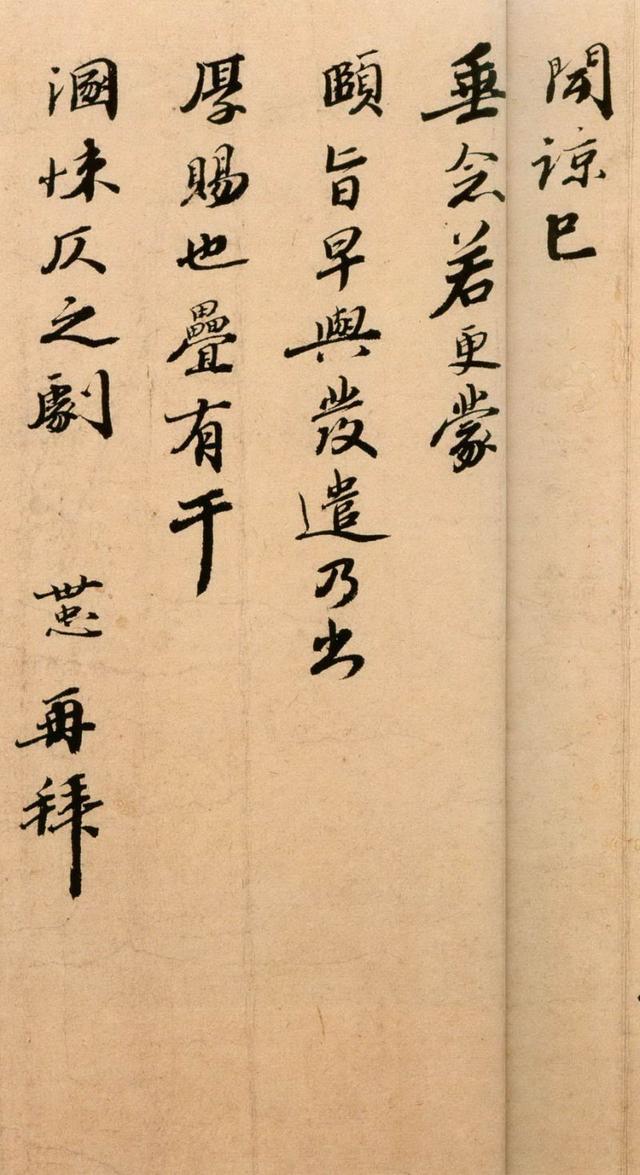 聞諒已
垂念若更蒙
頤旨早與發遣乃出
厚賜也疊有干
溷悚仄之劇 世忠 再拜